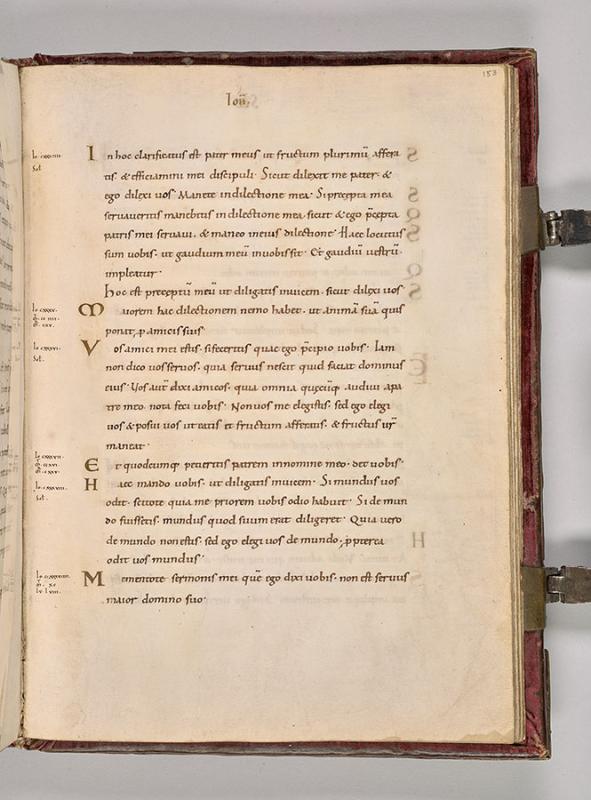 153
Ioħ.
In hoc clarificatus est pater meus ut fructum plurimū affera
tis & efficiamini mei discipuli. Sicut dilexit me pater &
ego dilexi uos. Manete in dilectione mea. Si precepta mea
seruaueritis manebitis in dilectione mea. sicut & ego p̄cepta
patris mei seruaui. & maneo in eius dilectione. Haec locutus
sum uobis. ut gaudium meū in uobis sit. Et gaudiū uestrū
impleatur.
hoc est preceptū meū ut diligatis inuicem. sicut dilexi uos
Maiorem hac dilectionem nemo habet. ut animā suā quis
ponat p̱ amicis suis
Vos amici mei estis. si feceritis quae ego p̄cipio uobis. Iam
non dico uos seruos. quia seruus nescit quid faciat dominus
eius. Uos aut̄ dixi amicos. quia omnia quecūq; audiui a pa
tre meo. nota feci uobis. Non uos me elegistis. sed ego elegi
uos & posui uos ut eatis et fructum afferatis. & fructus ur̄
maneat.
Et quodcumq; petieritis patrem in nomine meo. det uobis.
Haec mando uobis. ut diligatis inuicem. Si mundus uos
odit. scitote quia me priorem uobis odio habuit. Si de mun
do fuissetis. mundus quod suum erat diligeret. Quia uero
de mundo non estis. sed ego elegi uos de mundo. p̱pterea
odit uos mundus.
Mementote sermonis mei quē ego dixi uobis. non est seruus
maior domino suo.